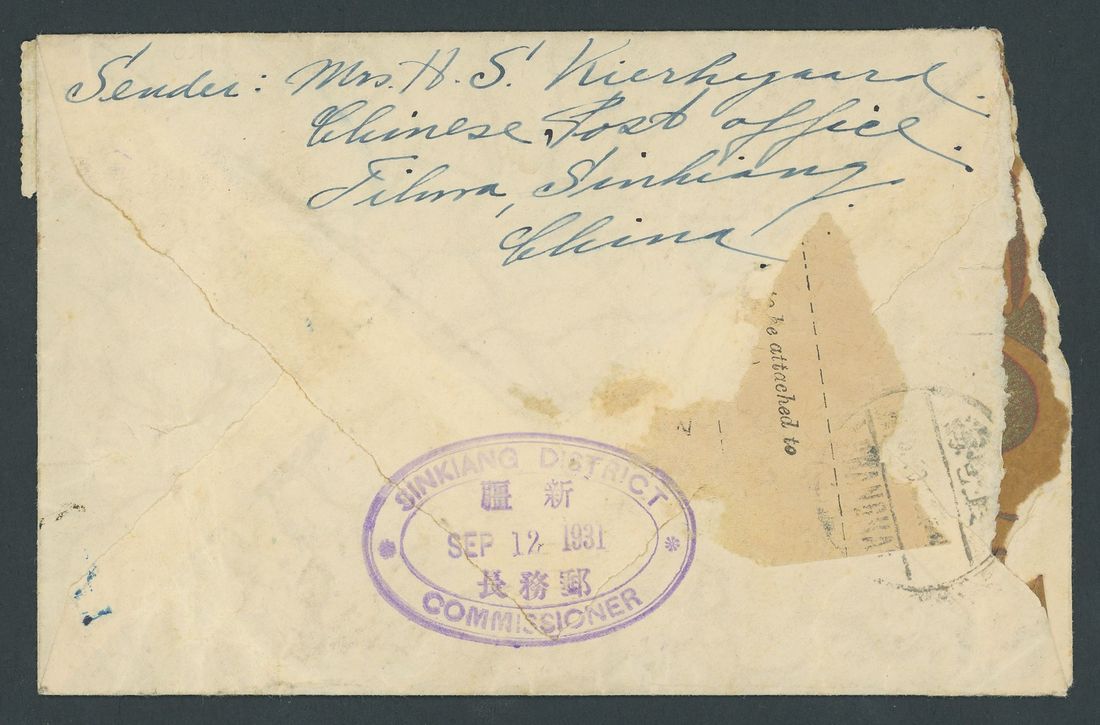 Sender: Mrs. H. S. Kierkegaard.
Chinese Post office.
Tihwa, Sinkiang.
China
be attached to
SINKIANG DISTRICT
疆 新
SEP 12 1931
長務郵
COMMISSIONER